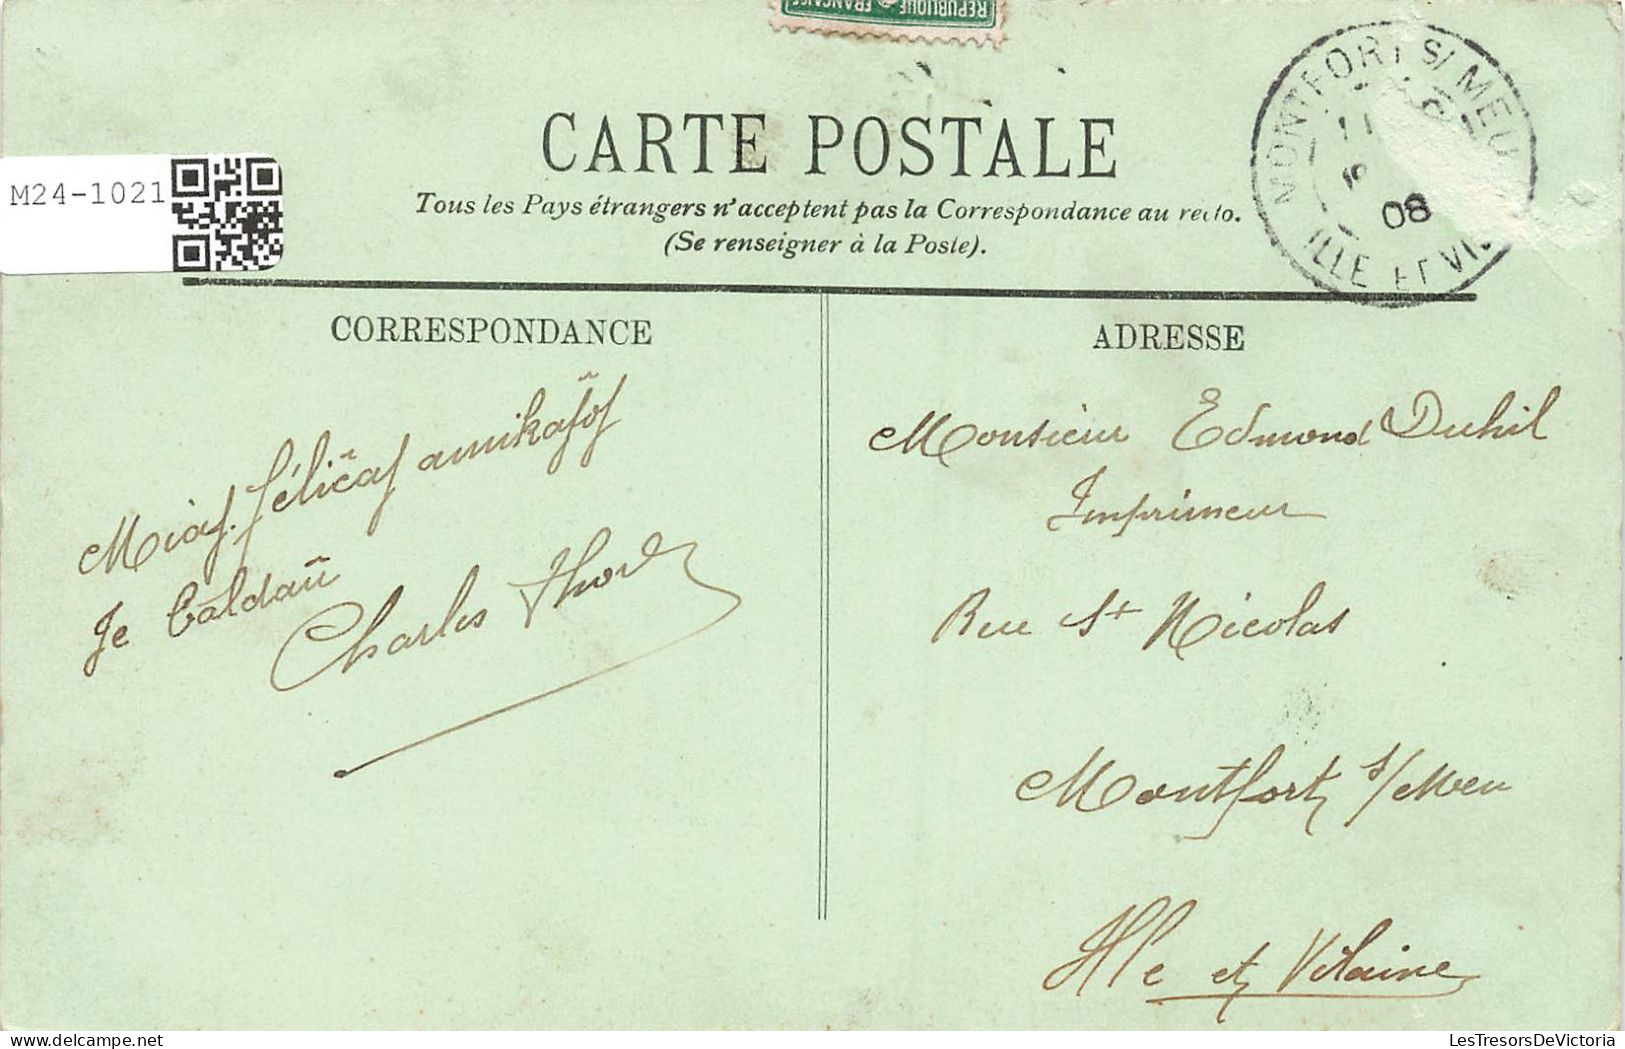 REPUBLIQUE FRANÇAISE
MONTFORT S/ MEU
08
ILLE ET VI
M24-1021
CARTE POSTALE
Tous les Pays étrangers n'acceptent pas la Correspondance au recto.
(Se renseigner à la Poste).
CORRESPONDANCE
félicaf amikafof
Je
Charles
ADRESSE
Monsieur Edmond Duhil
Imprimeur
Rue St Nicolas
Montfort s/Meu
Ille et Vilaine
LesTresorsDeVictoria